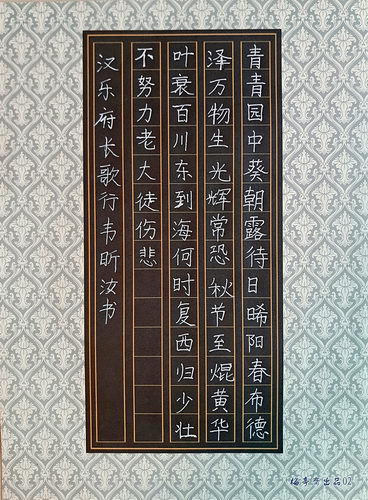 青青园中葵朝露待日晞阳春布德
泽万物生光辉常恐秋节至焜黄华
叶衰百川东到海何时复西归少壮
不努力老大徒伤悲
汉乐府长歌行韦昕汝书